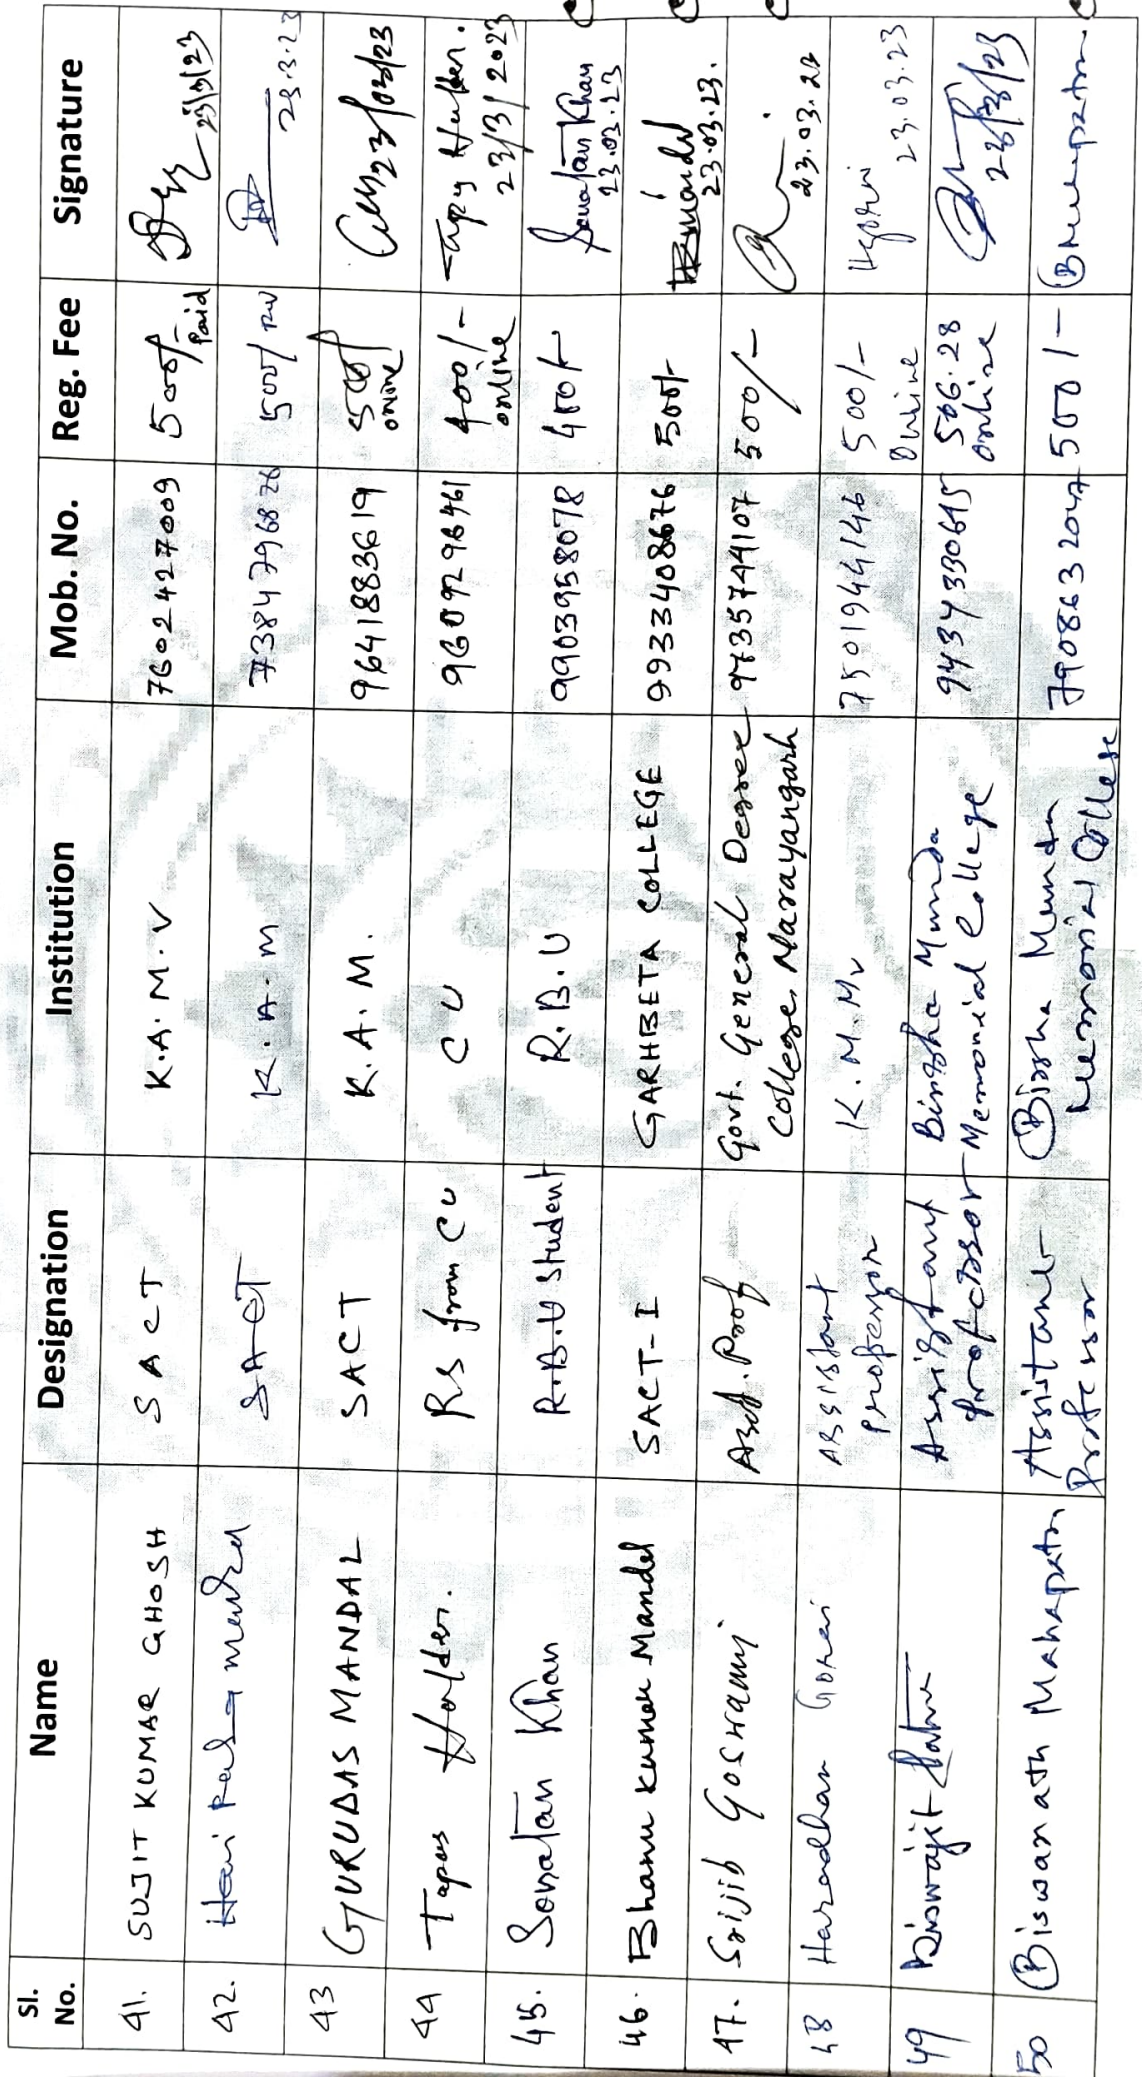 Sl. No. Name Designation Institution Mob. No. Reg. Fee Signature
41. SUJIT KUMAR GHOSH SACT K.A.M.V 7602427009 500/- Paid 23/3/23
42. SACT K.A.M 7384796876 500/- 23.3.23
43 GURUDAS MANDAL SACT K.A.M. 9641883619 500/ online 23/03/23
44 Tapas Halder. RS from CU CU 9609298461 400/- online Tapas Halder. 23/3/2023
45. Sonatan Khan R.B.U Student R.B.U 9903958078 400/- Sonatan Khan 23.03.23
46. Bhanu Kumar Mandal SACT-I GARHBETA COLLEGE 9933408676 500/- 23.03.23.
47. Srijib Goswami Asst. Prof Govt. General Degree College, Narayangarh 9735744107 500/- 23.03.23
48 Haradhan Gorai Assistant professor K.M.Mv 7501944146 500/- Online HGorai 23.03.23
49 Biswajit Assistant professor Birsha Munda Memorial College 9434330615 506.28 online 23/3/23
50 Biswanath Mahapatra Assistant Professor Birsha Munda Memorial College 7908632047 500/-